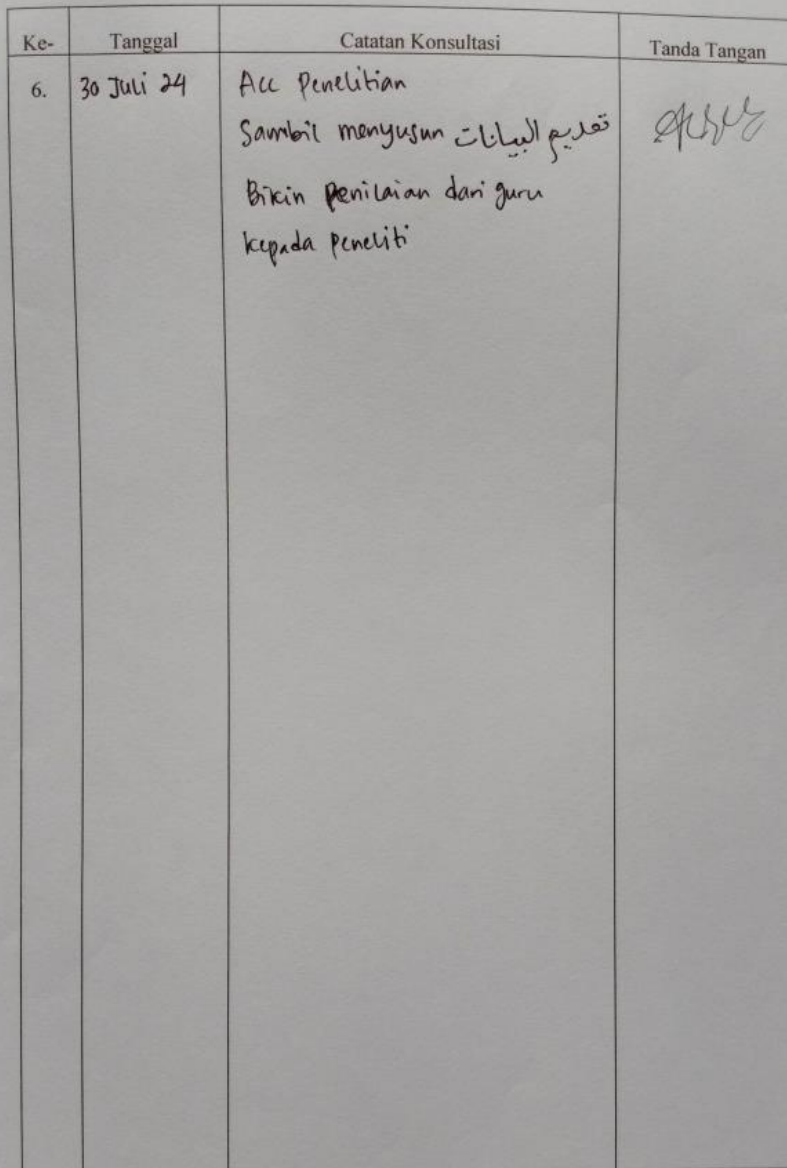 Ke- Tanggal Catatan Konsultasi Tanda Tangan
6. 30 Juli 24 Acc Penelitian
Sambil menyusun تقديم البيانات
Bikin penilaian dari guru
kepada peneliti